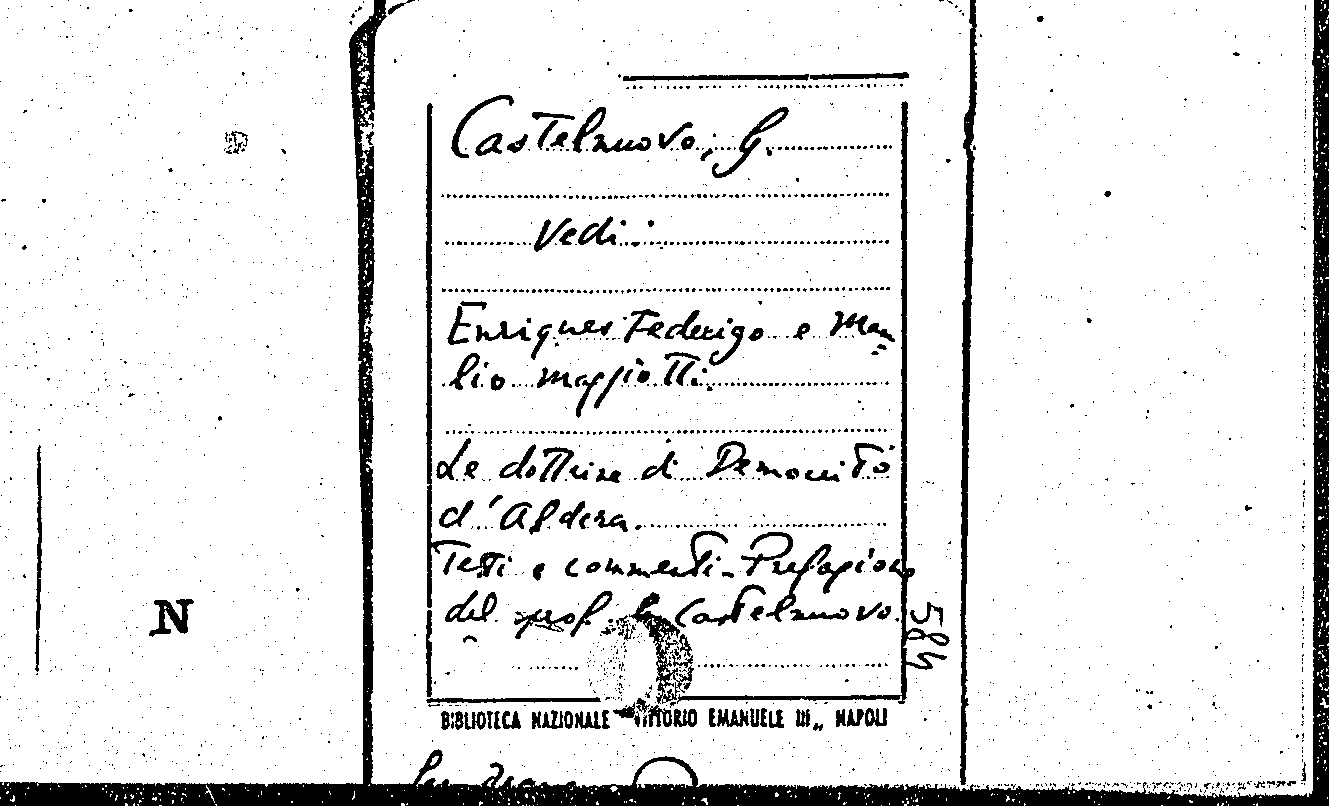 Castelnuovo, G.
Vedi:
Enriques Federigo e Man=
lio Mazziotti.
Le dottrine di Democrito
d'Abdera.
Testi e commenti - Prefazione
del prof. G. Castelnuovo.
584
N
BIBLIOTECA NAZIONALE "VITTORIO EMANUELE III„ NAPOLI